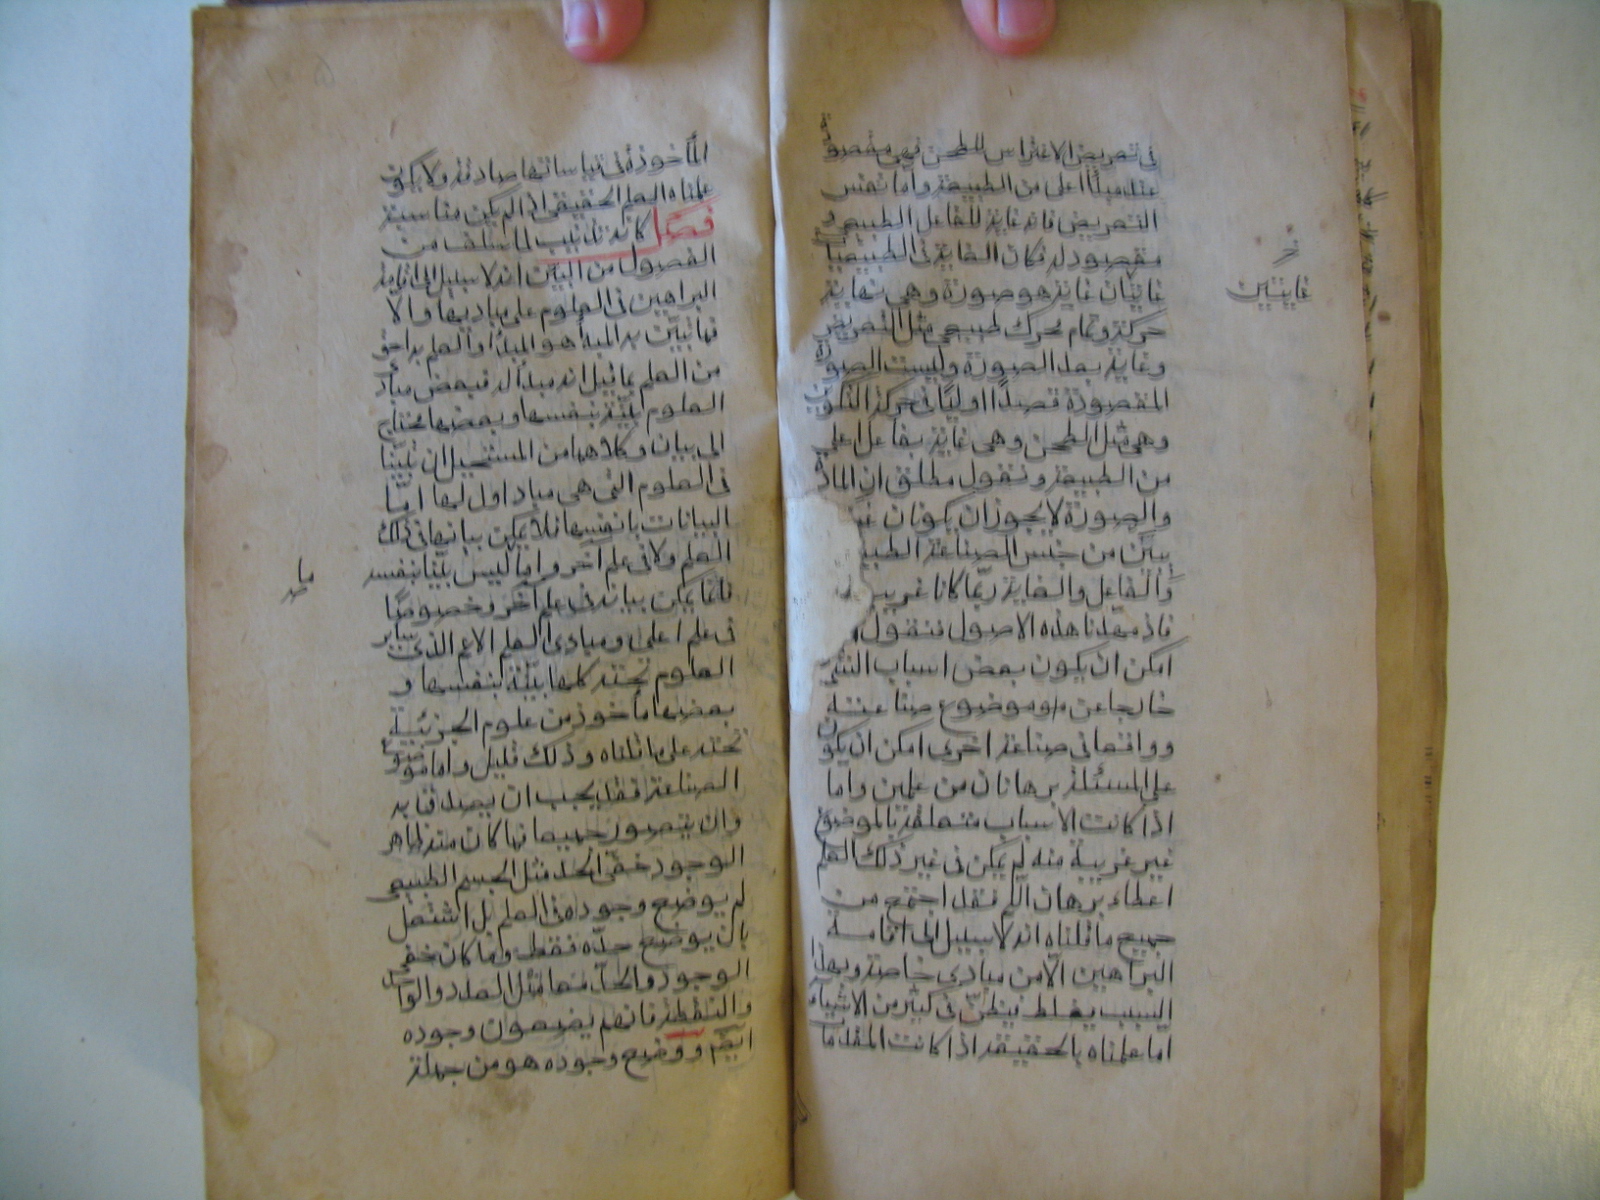 فى تعريض الاضراس للطحن فهى مقصودة
عند مبدأ اعلى من الطبيعة واما نفس
التعريض فانه غاية للفاعل الطبيعى و
مقصود له فكان الغاية فى الطبيعيات
غايتان غاية هو صورة وهى نهاية
حركة وتمام محرك طبيعى مثل التعريض
وغاية بعد الصورة وليست الصورة
المقصودة قصدًا اوليًا فى حركة التكوين
وهى مثل الطحن وهى غاية بفاعل اعلى
من الطبيعة ونقول مطلق ان المادة
والصورة لا يجوز ان يكونان غير
بيين من جنس الصناعة الطبيـ
والفاعل والغاية ربّما كانا غريبيـ
فاذ مهدنا هذه الاصول فنقول
امكن ان يكون بعض اسباب الشئ
خارجا عن موضوع صناعته
وواقعا فى صناعة اخرى امكن ان يكون
على المسئلة برهانان من علمين واما
اذا كانت الاسباب متعلقة بالموضوع
غير غريبة منه لم يمكن فى غير ذلك العلم
اعطاء برهان اللّم فقد اجتمع من
جميع ما قلناه انه لا سبيل الى اقامة
البراهين الّا من مبادى خاصة وبهذا
السبب يغلط فيظنّ فى كثير من الاشياء
اما علمناه بالحقيقة اذا كانت المقدما
غايتين
المأخوذة فى قياساتها صادقة ولا يكون
علمناه العلم الحقيقى اذا لم يكن مناسبة
فصل كانه تذنيب لما سلف من
الفصول من البيّن انه لا سبيل الى اقامة
البراهين فى العلوم على مباديها والا
فما تبيّن به المبدأ هو المبدأ او العلم به احق
من العلم بما قيل انه مبدأ له فبعض مبادى
العلوم بيّنة بنفسها وبعضها محتاج
الى بيان وكلاهما من المستحيل ان تبيّنا
فى العلوم التى هى مباد اول لها امّا
البيانات بانفسها فلا يمكن بيانها فى ذلك
العلم ولا فى علم آخر واما ليس بيّنا بنفسه
فانما يمكن بيانه فى علم آخر وخصوصًا
فى علم اعلى ومبادى العلم الاعم الذى ساير
العلوم تحته كلها بيّنة بنفسها و
بعضها مأخوذ من علوم الجزئية
تحته على ما قلناه وذلك قليل واما موضوع
الصناعة فقد يجب ان يصدق به
وان يتصور جميعا فما كان منه ظاهر
الوجود خفىّ الحد مثل الجسم الطبيعى
لم يوضع وجوده فى العلم بل اشتغل
بان يوضع حدّه فقط وما كان خفى
الوجود والحدّ معا مثل العدد والواحد
والنقطة فانهم يضعون وجوده
ايضًا ووضع وجوده هو من جملة
ما